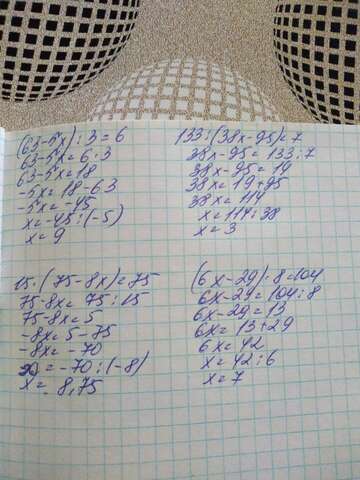 (63-5x):3=6
63-5x=6·3
63-5x=18
-5x=18-63
-5x=-45
x=-45:(-5)
x=9
133:(38x-95)=7
38x-95=133:7
38x-95=19
38x=19+95
38x=114
x=114:38
x=3
15·(75-8x)=75
75-8x=75:15
75-8x=5
-8x=5-75
-8x=-70
x=-70:(-8)
x=8,75
(6x-29)·8=104
6x-29=104:8
6x-29=13
6x=13+29
6x=42
x=42:6
x=7